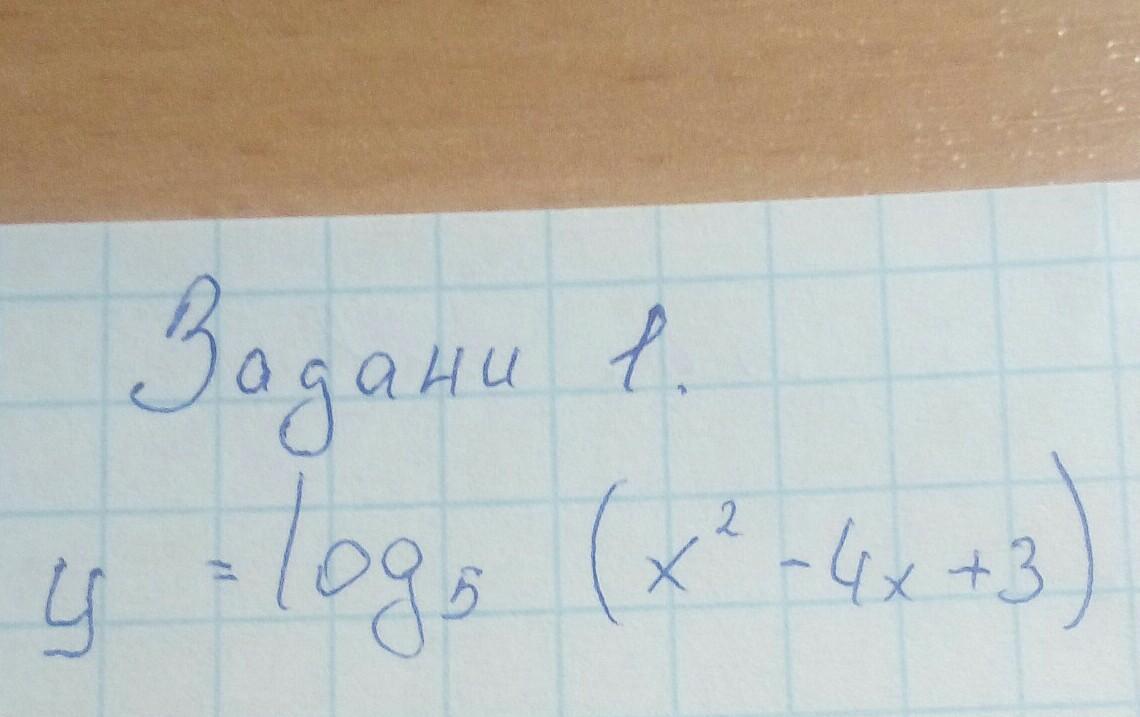 Задани 1.
y = log₅ (x² - 4x + 3)